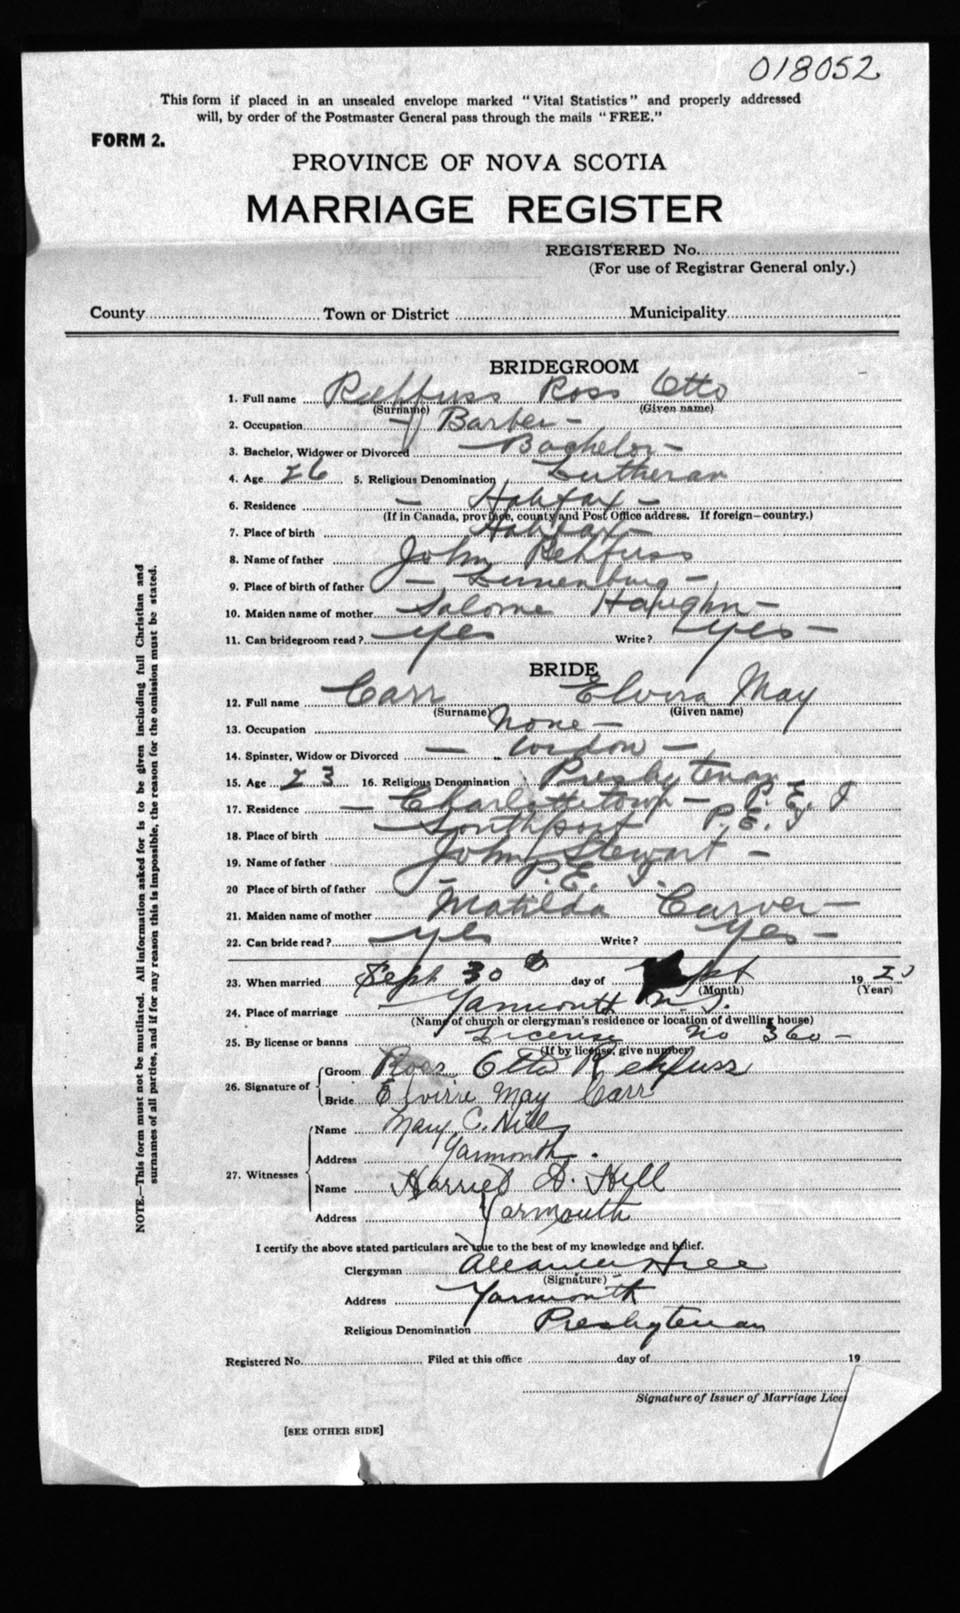 018052
This form if placed in an unsealed envelope marked "Vital Statistics" and properly addressed
will, by order of the Postmaster General pass through the mails "FREE."
FORM 2.
PROVINCE OF NOVA SCOTIA
MARRIAGE REGISTER
REGISTERED No.
(For use of Registrar General only.)
County Town or District Municipality
BRIDEGROOM
1. Full name Rehfuss Ross Otto
(Surname) (Given name)
2. Occupation - Barber -
3. Bachelor, Widower or Divorced - Bachelor -
4. Age 26 5. Religious Denomination Lutheran
6. Residence - Halifax -
(If in Canada, province, county and Post Office address. If foreign—country.)
7. Place of birth Halifax -
8. Name of father John Rehfuss
9. Place of birth of father - Lunenburg -
10. Maiden name of mother Salome
11. Can bridegroom read? yes Write? yes -
BRIDE
12. Full name Carr Elvira May
(Surname) (Given name)
13. Occupation None -
14. Spinster, Widow or Divorced - widow -
15. Age 23 16. Religious Denomination Presbyterian
17. Residence - Charlottetown - P. E. I
18. Place of birth - Southport P. E. I
19. Name of father John Stewart -
20 Place of birth of father - P. E. I.
21. Maiden name of mother Matilda Carver -
22. Can bride read? yes Write? yes -
23. When married Sept 30 day of Sept 19
(Month) (Year)
24. Place of marriage Yarmouth N. S.
(Name of church or clergyman's residence or location of dwelling house)
25. By license or banns License No 360 -
(If by license, give number)
26. Signature of Groom Ross Otto Rehfuss
Bride Elvirie May Carr
27. Witnesses Name Mary C. Hill
Address Yarmouth .
Name Harriet D. Hill
Address Yarmouth
I certify the above stated particulars are true to the best of my knowledge and belief.
Clergyman Hill
(Signature)
Address Yarmouth
Religious Denomination Presbyterian
Registered No. Filed at this office day of 19
Signature of Issuer of Marriage Lice
[SEE OTHER SIDE]
NOTE.—This form must not be mutilated. All information asked for is to be given including full Christian and
surnames of all parties, and if for any reason this is impossible, the reason for the omission must be stated.